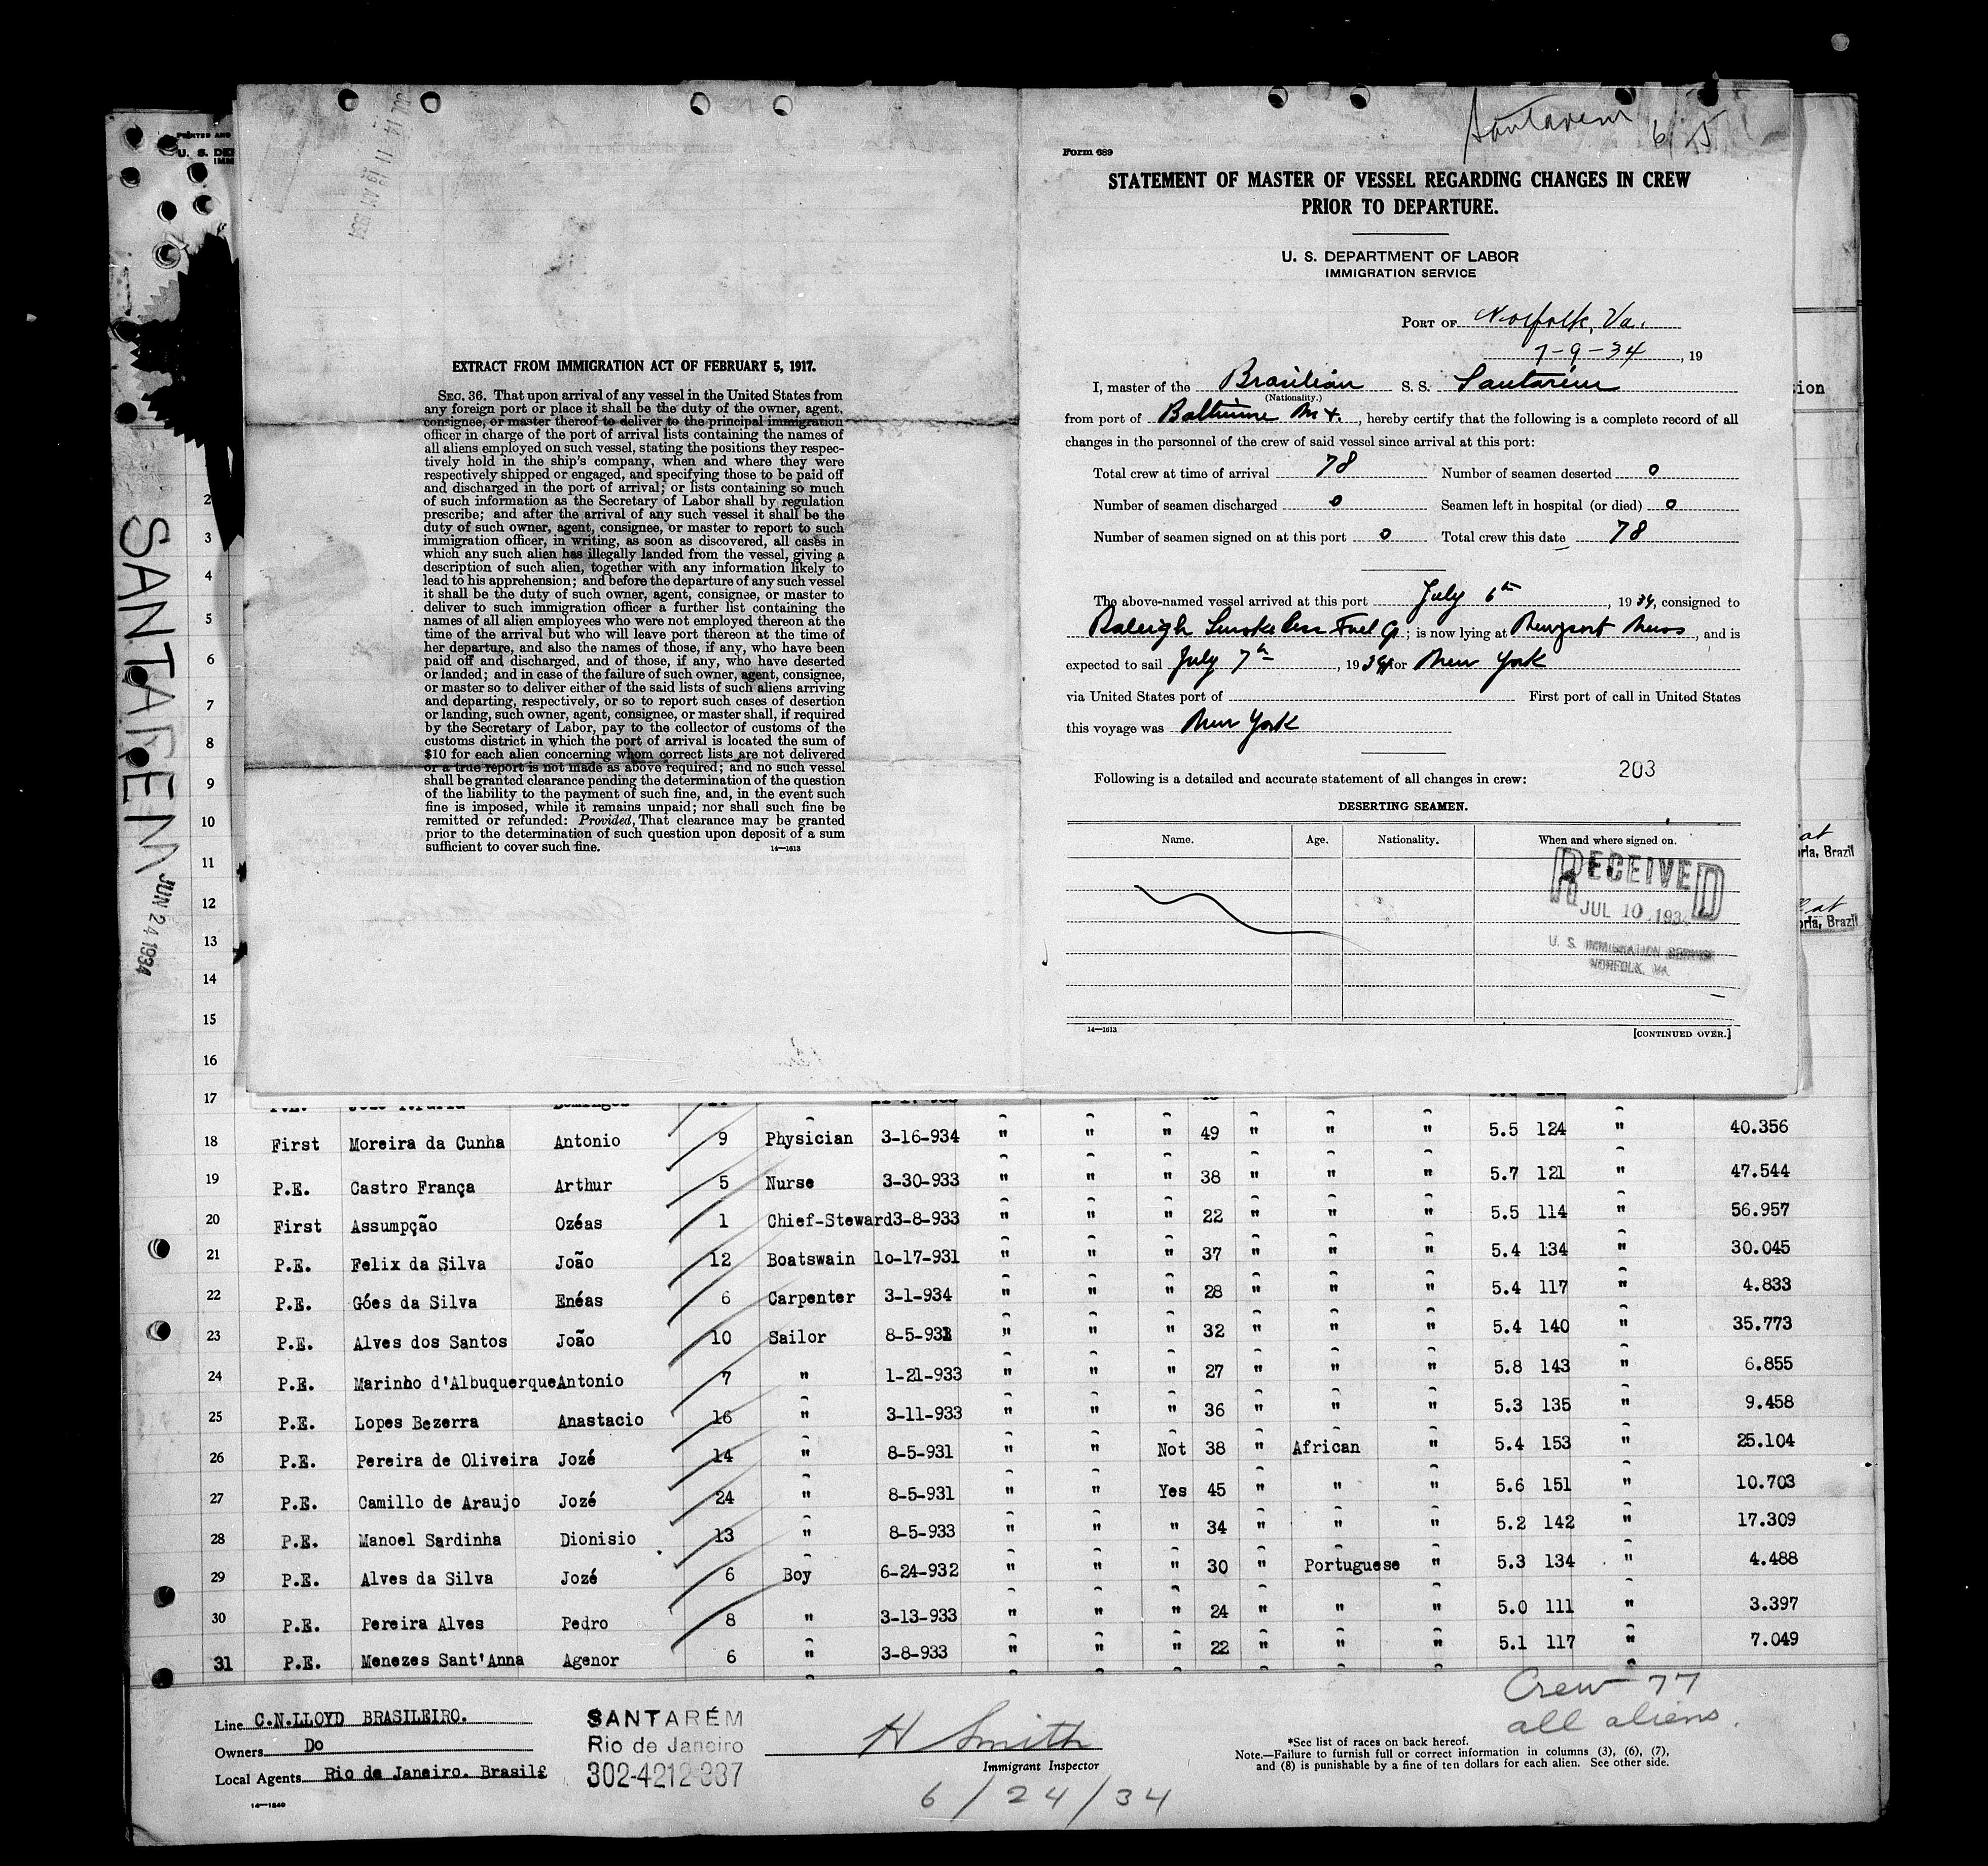 PRINTED AND
U. S. DE
IMM
SANTAREM
JUN 24 1934
JUL 14 11 19 AM 1934
EXTRACT FROM IMMIGRATION ACT OF FEBRUARY 5, 1917.
SEC. 36. That upon arrival of any vessel in the United States from
any foreign port or place it shall be the duty of the owner, agent,
consignee, or master thereof to deliver to the principal immigration
officer in charge of the port of arrival lists containing the names of
all aliens employed on such vessel, stating the positions they respec-
tively hold in the ship's company, when and where they were
respectively shipped or engaged, and specifying those to be paid off
and discharged in the port of arrival; or lists containing so much
of such information as the Secretary of Labor shall by regulation
prescribe; and after the arrival of any such vessel it shall be the
duty of such owner, agent, consignee, or master to report to such
immigration officer, in writing, as soon as discovered, all cases in
which any such alien has illegally landed from the vessel, giving a
description of such alien, together with any information likely to
lead to his apprehension; and before the departure of any such vessel
it shall be the duty of such owner, agent, consignee, or master to
deliver to such immigration officer a further list containing the
names of all alien employees who were not employed thereon at the
time of the arrival but who will leave port thereon at the time of
her departure, and also the names of those, if any, who have been
paid off and discharged, and of those, if any, who have deserted
or landed; and in case of the failure of such owner, agent, consignee,
or master so to deliver either of the said lists of such aliens arriving
and departing, respectively, or so to report such cases of desertion
or landing, such owner, agent, consignee, or master shall, if required
by the Secretary of Labor, pay to the collector of customs of the
customs district in which the port of arrival is located the sum of
$10 for each alien concerning whom correct lists are not delivered
or a true report is not made as above required; and no such vessel
shall be granted clearance pending the determination of the question
of the liability to the payment of such fine, and, in the event such
fine is imposed, while it remains unpaid; nor shall such fine be
remitted or refunded: Provided, That clearance may be granted
prior to the determination of such question upon deposit of a sum
sufficient to cover such fine.
14—1613
Santarem 6/25
Form 689
STATEMENT OF MASTER OF VESSEL REGARDING CHANGES IN CREW
PRIOR TO DEPARTURE.
U. S. DEPARTMENT OF LABOR
IMMIGRATION SERVICE
PORT OF Norfolk, Va.
7-9-34, 19
I, master of the Brasilian S. S. Santarém
(Nationality.)
from port of Baltimore Md., hereby certify that the following is a complete record of all
changes in the personnel of the crew of said vessel since arrival at this port:
Total crew at time of arrival 78 Number of seamen deserted 0
Number of seamen discharged 0 Seamen left in hospital (or died) 0
Number of seamen signed on at this port 0 Total crew this date 78
The above-named vessel arrived at this port July 6th, 1934, consigned to
Raleigh Smokeless Fuel Co; is now lying at Newport News, and is
expected to sail July 7th, 1934 for New York
via United States port of First port of call in United States
this voyage was New York
Following is a detailed and accurate statement of all changes in crew: 203
DESERTING SEAMEN.
Name. Age. Nationality. When and where signed on.
RECEIVED
JUL 10 1934
U. S. IMMIGRATION SERVICE
NORFOLK, VA.
14—1613 [CONTINUED OVER.]
ion
at
oria, Brazil
at
oria, Brazil
2
3
4
5
6
7
8
9
10
11
12
13
14
15
16
17
18 First Moreira da Cunha Antonio 9 Physician 3-16-934 " " " 49 " " " 5.5 124 " 40.356
19 P.E. Castro França Arthur 5 Nurse 3-30-933 " " " 38 " " " 5.7 121 " 47.544
20 First Assumpção Ozéas 1 Chief-Steward 3-8-933 " " " 22 " " " 5.5 114 " 56.957
21 P.E. Felix da Silva João 12 Boatswain 10-17-931 " " " 37 " " " 5.4 134 " 30.045
22 P.E. Góes da Silva Enéas 6 Carpenter 3-1-934 " " " 28 " " " 5.4 117 " 4.833
23 P.E. Alves dos Santos João 10 Sailor 8-5-931 " " " 32 " " " 5.4 140 " 35.773
24 P.E. Marinho d'Albuquerque Antonio 7 " 1-21-933 " " " 27 " " " 5.8 143 " 6.855
25 P.E. Lopes Bezerra Anastacio 16 " 3-11-933 " " " 36 " " " 5.3 135 " 9.458
26 P.E. Pereira de Oliveira Jozé 14 " 8-5-931 " " Not 38 " African " 5.4 153 " 25.104
27 P.E. Camillo de Araujo Jozé 24 " 8-5-931 " " Yes 45 " " " 5.6 151 " 10.703
28 P.E. Manoel Sardinha Dionisio 13 " 8-5-933 " " " 34 " " " 5.2 142 " 17.309
29 P.E. Alves da Silva Jozé 6 Boy 6-24-932 " " " 30 " Portuguese " 5.3 134 " 4.488
30 P.E. Pereira Alves Pedro 8 " 3-13-933 " " " 24 " " " 5.0 111 " 3.397
31 P.E. Menezes Sant'Anna Agenor 6 " 3-8-933 " " " 22 " " " 5.1 117 " 7.049
Crew 77
all aliens.
Line C.N.LLOYD BRASILEIRO.
Owners Do
Local Agents Rio de Janeiro. Brasil
14—1240
SANTARÉM
Rio de Janeiro
302-4212-937
H Smith
Immigrant Inspector
6/24/34
*See list of races on back hereof.
Note.—Failure to furnish full or correct information in columns (3), (6), (7),
and (8) is punishable by a fine of ten dollars for each alien. See other side.